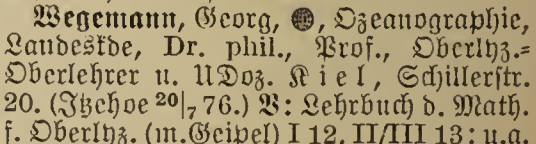 Wegemann, Georg, Ozeanographie,
Landeskde, Dr. phil., Prof., Oberlyz.=
Oberlehrer u. UDoz. Kiel, Schillerstr.
20. (Itzehoe 20|7 76.) V: Lehrbuch d. Math.
f. Oberlyz. (m. Geipel) I 12, II/III 13; u.a.